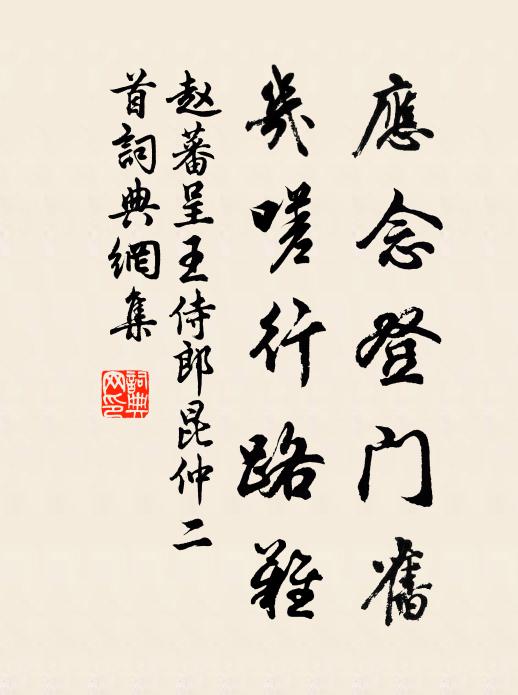 應念登门舊
幾嗟行路難
赵蕃呈王侍郎昆仲二
首詞典網集
詞典网印